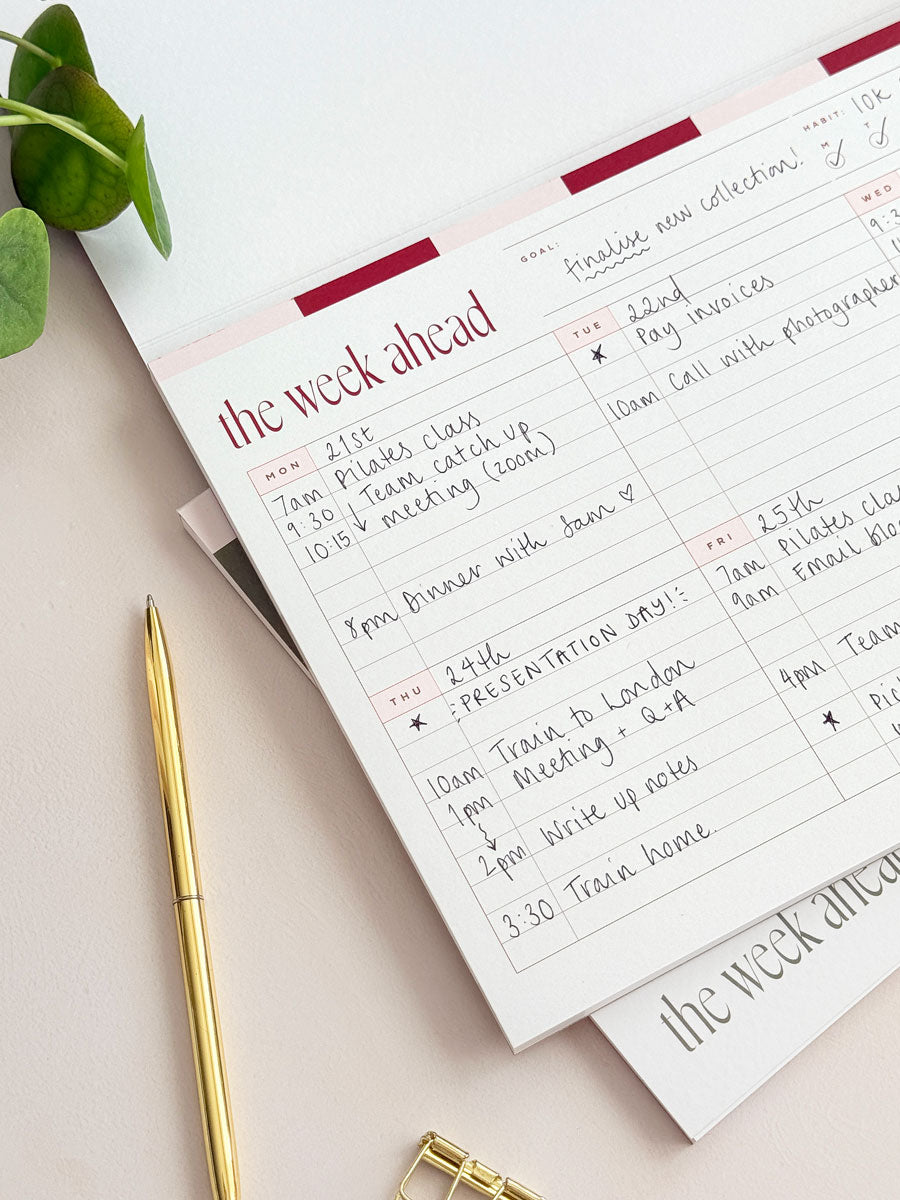 the week ahead
GOAL:
finalise new collection!
HABIT: 10K
M T
MON 21st
7am Pilates class
9:30 Team catch up
10:15 meeting (zoom)
8pm Dinner with Sam ♡
TUE 22nd
★ Pay invoices
10am Call with photographer
WED
THU 24th
★ PRESENTATION DAY!
10am Train to London
1pm Meeting + Q+A
2pm Write up notes
3:30 Train home.
FRI 25th
7am Pilates
9am Email
4pm Team
★
the week ahead